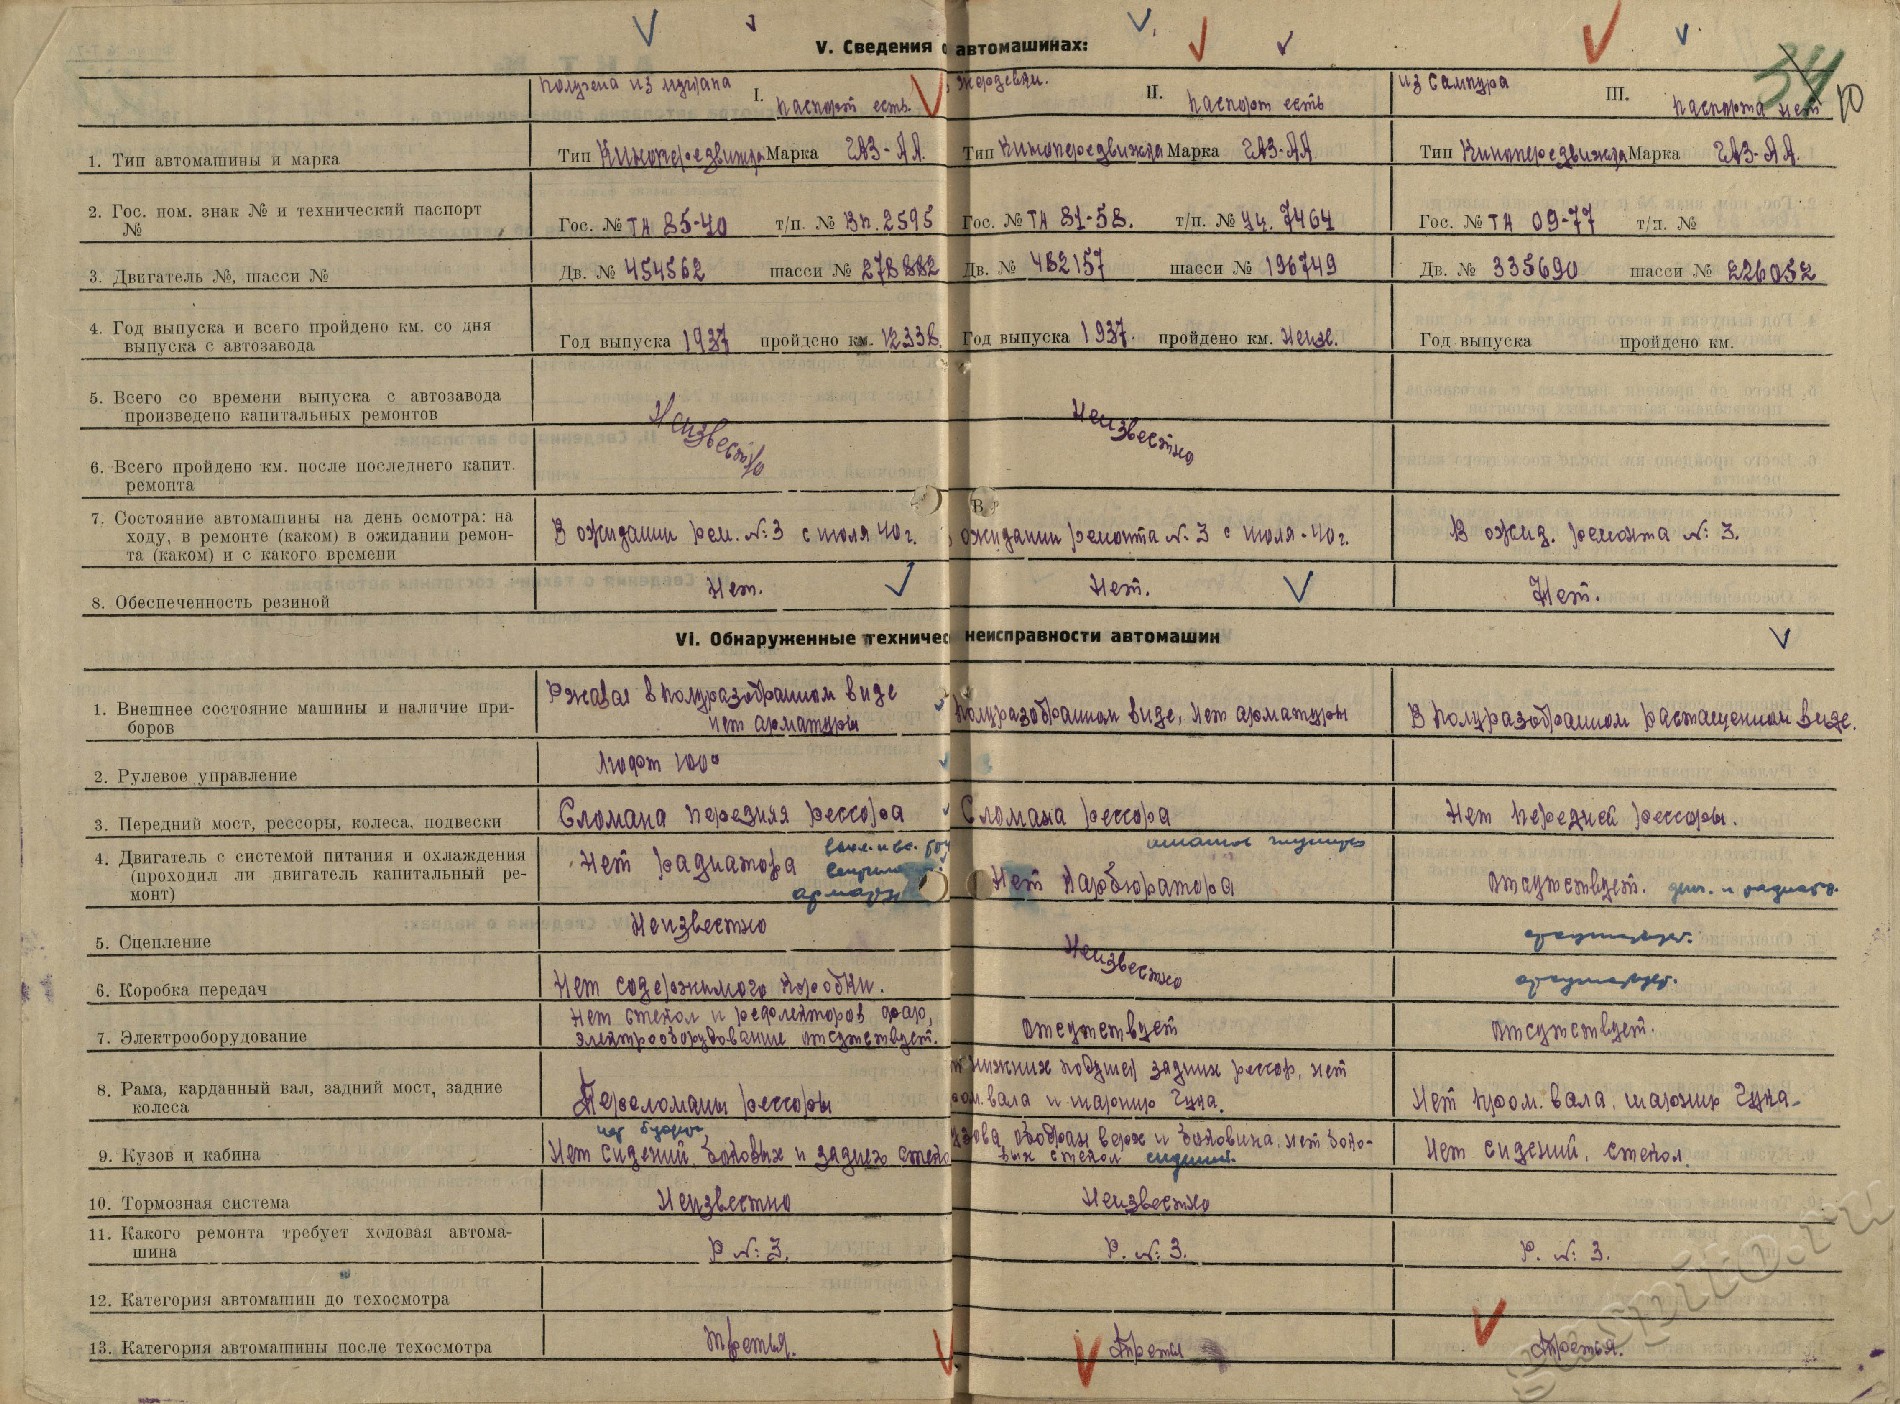 V. Сведения о автомашинах:
34
10
Получена из
I.
Паспорт есть.
II.
Паспорт есть
из Сампура
III.
Паспорта нет
1. Тип автомашины и марка
Тип Кинопередвижка Марка ГАЗ-АА.
Тип Кинопередвижка Марка ГАЗ-АА
Тип Кинопередвижка Марка ГАЗ-АА.
2. Гос. ном. знак № и технический паспорт
№
Гос. № ТА 85-40 т/п. № Вп. 2595
Гос. № ТА 81-58. т/п. № 7464
Гос. № ТА 09-77 т/п. №
3. Двигатель №, шасси №
Дв. № 454562 шасси № 278882
Дв. № 482157 шасси № 196749
Дв. № 335690 шасси № 226052
4. Год выпуска и всего пройдено км. со дня
выпуска с автозавода
Год выпуска 1937 пройдено км. 12338.
Год выпуска 1937. пройдено км. Неизв.
Год выпуска пройдено км.
5. Всего со времени выпуска с автозавода
произведено капитальных ремонтов
Неизвестно
Неизвестно
6. Всего пройдено км. после последнего капит.
ремонта
7. Состояние автомашины на день осмотра: на
ходу, в ремонте (каком) в ожидании ремон-
та (каком) и с какого времени
В ожидании рем. №: 3 с июля 40 г.
В
ожидании ремонта №: 3 с июля-40 г.
В ожид. ремонта №: 3.
8. Обеспеченность резиной
Нет.
Нет.
Нет.
VI. Обнаруженные техничес неисправности автомашин
1. Внешнее состояние машины и наличие при-
боров
Ржавая в полуразобранном виде
нет арматуры
Полуразобранном виде, нет арматуры
В полуразобранном растащенном виде.
2. Рулевое управление
Люфт 100°
3. Передний мост, рессоры, колеса, подвески
Сломана передняя рессора
Сломана рессора
Нет передней рессоры.
4. Двигатель с системой питания и охлаждения
(проходил ли двигатель капитальный ре-
монт)
Нет радиатора
Нет карбюратора
отсутствует. дин. и радиат.
5. Сцепление
Неизвестно
Неизвестно
отсутствует.
6. Коробка передач
Нет содержимого коробки.
отсутствует.
7. Электрооборудование
Нет стекол и рефлекторов фар,
электрооборудование отсутствует.
отсутствует
отсутствует.
8. Рама, карданный вал, задний мост, задние
колеса
Переломаны рессоры
нижних подушек задних рессор, нет
пром. вала и шарнир Гука.
Нет пром. вала, шарнир Гука.
9. Кузов и кабина
Нет сидений, боковых и заднего стекол
кузова, ободран верх и боковина, нет боко-
вых стекол сидений.
Нет сидений, стекол.
10. Тормозная система
Неизвестно
Неизвестно
11. Какого ремонта требует ходовая автома-
шина
Р №: 3.
Р. №: 3.
Р. №: 3.
12. Категория автомашин до техосмотра
13. Категория автомашины после техосмотра
Третья.
Третья
Третья.
gaspito.ru